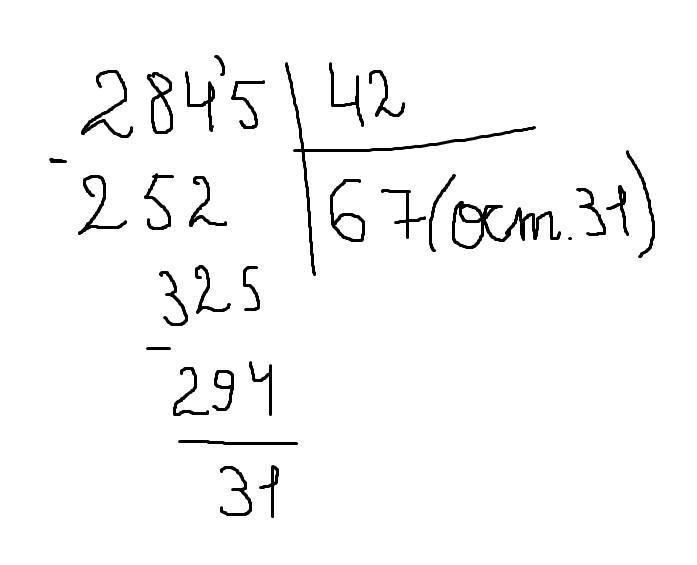 284'5 42
- 252 67 (ост. 31)
325
- 294
31